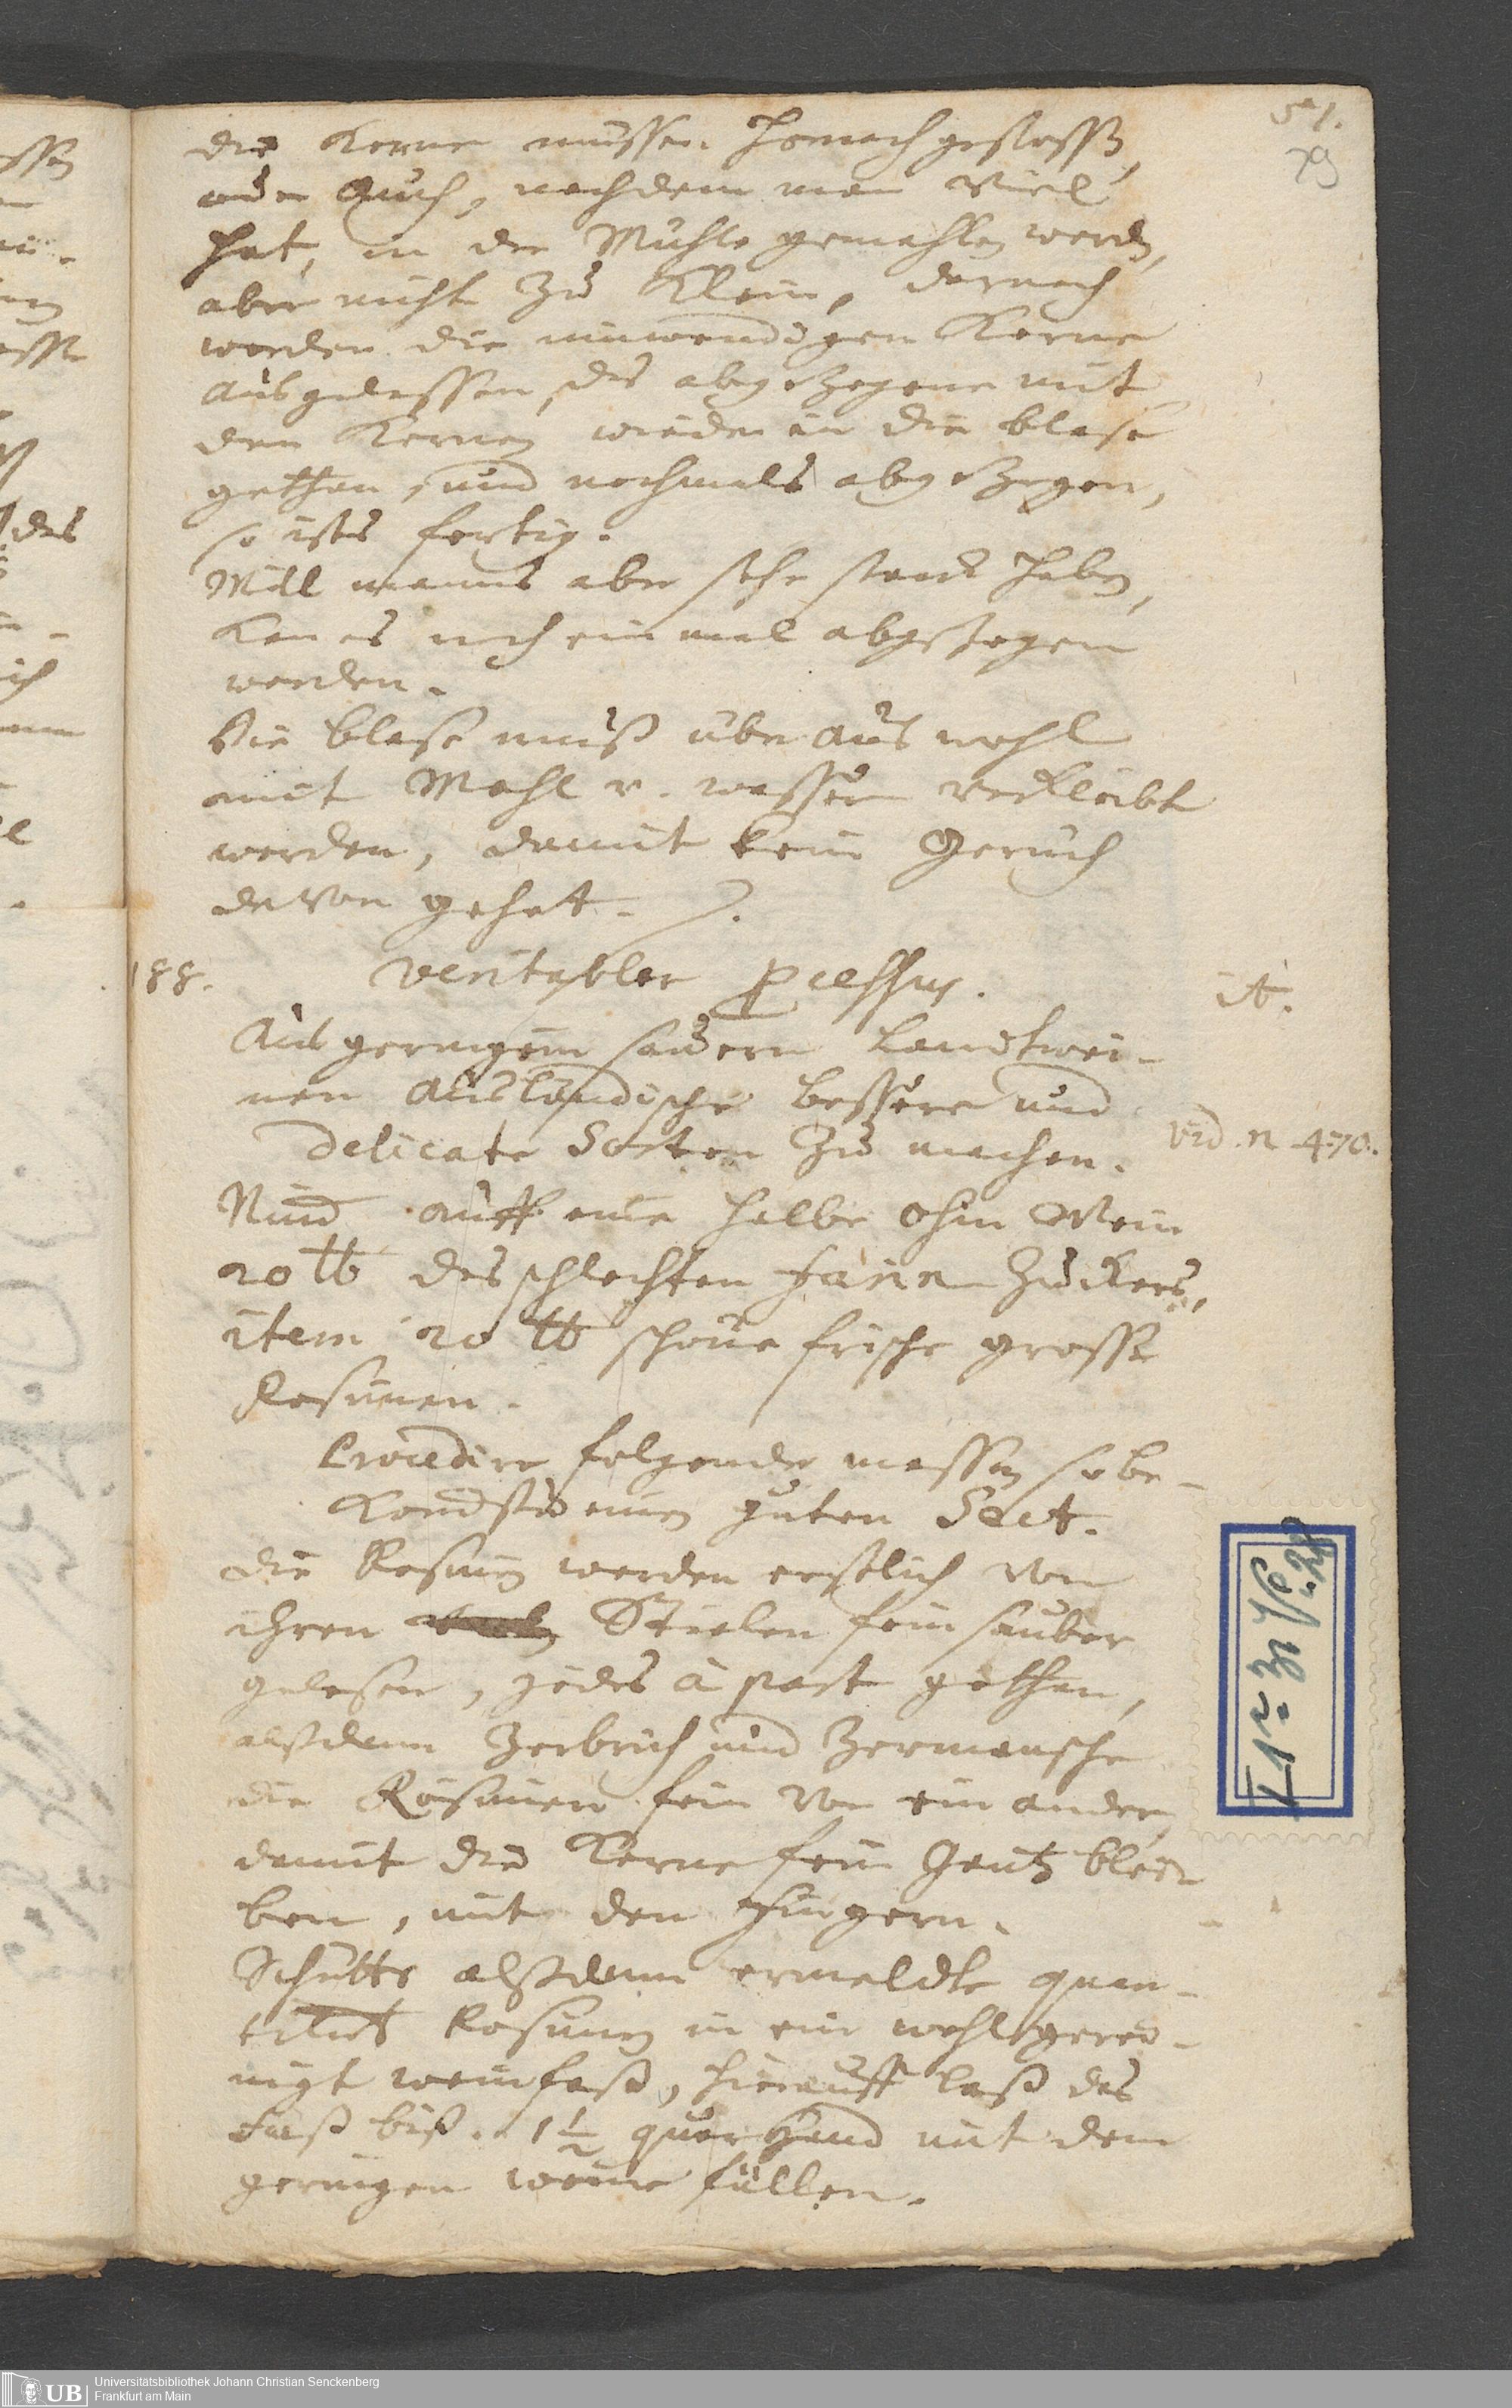 521.
79
die Kerne müssen hernach gestossẽ,
oder auch, nachdem man Viel
hat, in der Mühle gemahlen werdẽ,
aber nicht zu Klein, darnach
werden die inwendigen Kerne
ausgelessen, das abgezogene mit
den Kernen wieder in die blase
gethan, und nochmals abgezogen,
so ists fertig.
Will manns aber sehr starck haben,
Kan es noch ein mal abgezogen
werden.
Die blase muß über aus wohl
mit Mehl v. wasser verkleibt
werden, damit kein Geruch
davon gehet.
188. veritabler Processus. it.
Aus geringem sauern Landtwei-
nen ausländische bessere und
delicate Sorten zu machen. vid. n. 470.
Nimb auff eine halbe Ohm Wein
20 ℔ des schlechten farin Zuckers,
item 20 ℔ schöne frische grosse
Rosinen.
Procedire folgender massen so be-
Kombstu einen guten Sect.
Die Rosinen werden erstlich von
ihren Stielen fein sauber
gelesen, jedes à part gethan,
alßdann Zerbrich und Zermansche
die Rosinen fein von ein ander,
damit die Kerne fein Gantz blei-
ben, mit den Fingern.
Schütte alßdann ermeldte quan-
titet Rosinen in ein wohl gerei-
nigt weinfaß, hierauff laß das
Faß biß 1½ quer Hand mit dem
geringen weine füllen.
UB
Universitätsbibliothek Johann Christian Senckenberg
Frankfurt am Main